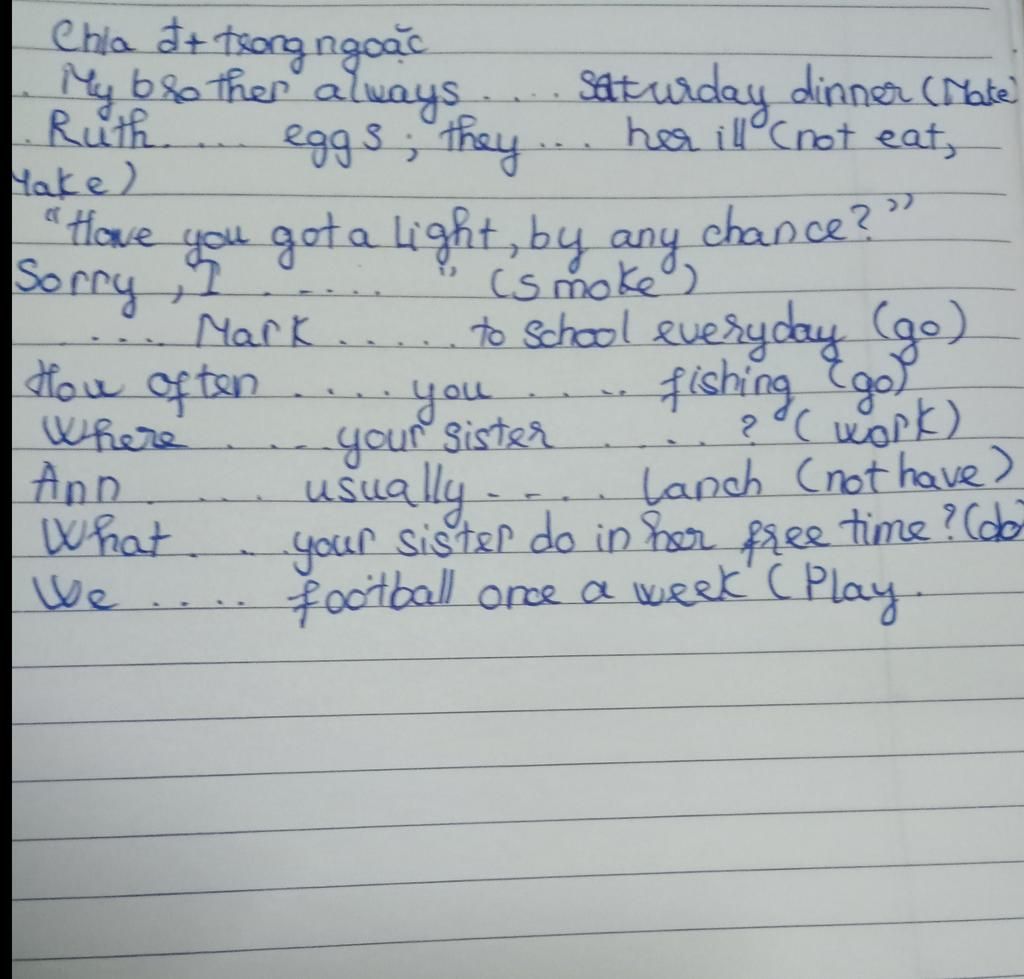 Chia đt trong ngoặc
. My brother always .... saturday dinner (Make)
. Ruth .... eggs ; they ... her ill (not eat,
Make)
"Have you got a light, by any chance?"
Sorry, I ..... " (smoke)
.... Mark ..... to school everyday (go)
How often .... you ..... fishing (go)
Where .... your sister ..... ? (work)
Ann .... usually .... lanch (not have)
What .. . your sister do in her free time? (do
We .... football once a week (Play.